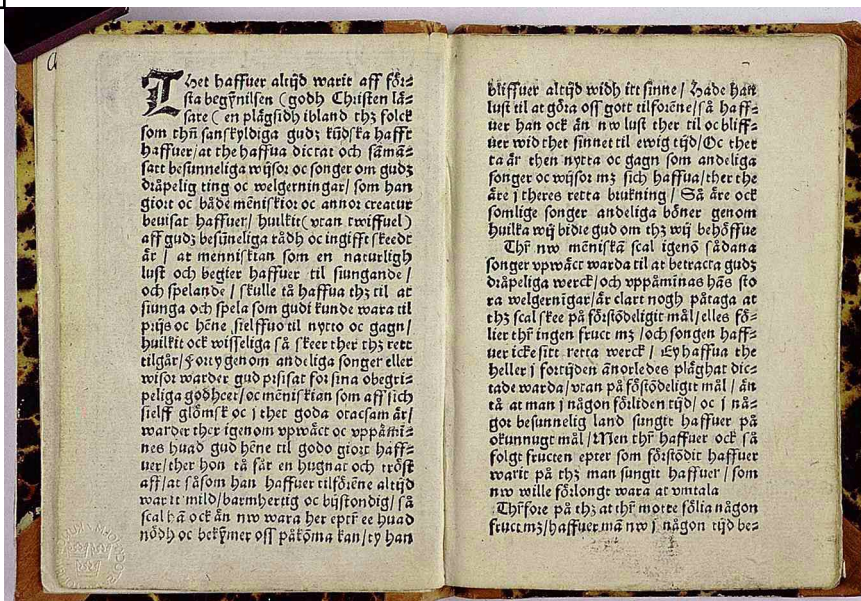 THet haffuer altijd warit aff för⸗
sta begÿnilsen (godh Christen lä⸗
sare (en plägsidh ibland thꝫ folck
som thñ sanskyldiga gudꝫ kũdska hafft
haffuer/at the haffua dictat och sãmã⸗
satt besunneliga wijsor oc songer om gudꝫ
dråpelig ting oc welgerningar/ som han
giort oc både mẽniskior oc annor creatur
beuisat haffuer/ huilkit (vtan twiffuel)
aff gudꝫ besũneliga rådh oc ingifft skeedt
är / at menniskian som en naturligh
lust och begier haffuer til siungande /
och spelande / skulle tå haffua thꝫ til at
siunga och spela som gudi kunde wara til
prijs oc hẽne sielffuo til nytto oc gagn/
huilkit ock wisseliga så skeer ther thꝫ rett
tilgår/ Forty genom andeliga songer eller
wisor warder gud prisat for sina obegri⸗
peliga godheet/oc mẽniskian som aff sich
sielff glömsk oc i thet goda otacsam är/
warder ther igenom vpwäct oc vppåmĩ⸗
nes huad gud hẽne til godo giort haff⸗
uer/ther hon tå får en hugnat och tröst
aff/at såsom han haffuer tilförẽne altijd
warit mild/barmhertig oc bijstondig/ så
scal hã ock än nw wara her eptr̃ ee huad
nödh oc bekÿmer oss påkõma kan/ty han
bliffuer altijd widh itt sinne / Hade han
lust til at göra oss gott tilförẽne/så haff⸗
uer han ock än nw lust ther til oc bliff⸗
uer wid thet sinnet til ewig tijd/Oc ther
ta är then nytta oc gagn som andeliga
songer oc wijsor mꝫ sich haffua/ther the
äre j theres retta brukning / Så äre ock
somlige songer andeliga böner genom
huilka wij bidie gud om thꝫ wij behöffue
Thr̃ nw mẽniskã scal igenõ sådana
songer vpwäct warda til at betracta gudꝫ
dråpeliga werck/och vppåminas hãs sto
ra welgernĩgar/är clart nogh påtaga at
thꝫ scal skee på förstõdeligit mål/elles fö⸗
lier thr̃ ingen fruct mꝫ /och songen haff⸗
uer icke sitt retta werck / Ey haffua the
heller i fortijden ãnorledes pläghat dic⸗
tade warda/vtan på föstõdeligit mål / än
tå at man i någon förliden tijd/ oc i nå⸗
got besunnelig land sungit haffuer på
okunnugt mål /Men thr̃ haffuer ock så
folgt fructen epter som förstõdit haffuer
warit på thꝫ man sungit haffuer / som
nw wille förlongt wara at vmtala
Thr̃fore på thꝫ at thr̃ motte fölia någon
fruct mꝫ/haffuer mã nw j någon tijd be⸗